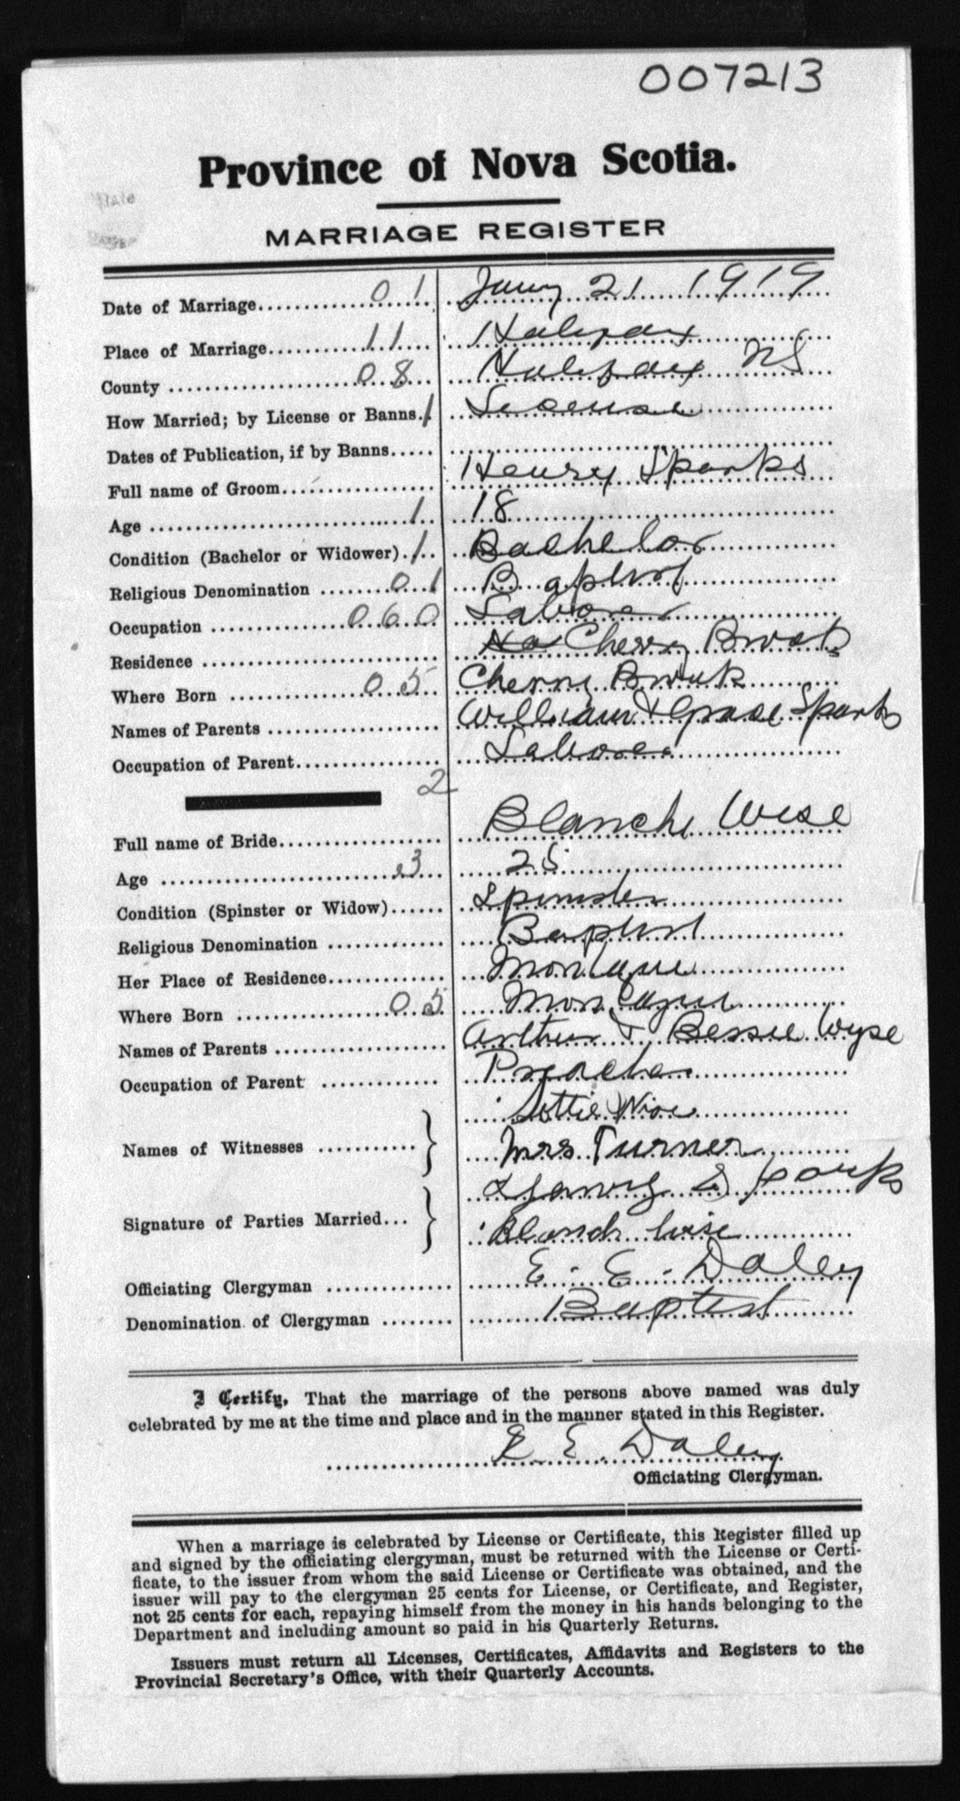 007213
Province of Nova Scotia.
MARRIAGE REGISTER
Date of Marriage 01 Jany 21 1919
Place of Marriage 11 Halifax
County 08 Halifax NS
How Married; by License or Banns 1 License
Dates of Publication, if by Banns
Full name of Groom Henry Sparks
Age 1 18
Condition (Bachelor or Widower) 1 Bachelor
Religious Denomination 01 Baptist
Occupation 060 Laborer
Residence Cherry Brook
Where Born 05 Cherry Brook
Names of Parents William & Grace Sparks
Occupation of Parent Laborer
2
Full name of Bride Blanche Wise
Age 3 25
Condition (Spinster or Widow) Spinster
Religious Denomination Baptist
Her Place of Residence Montague
Where Born 05 Montague
Names of Parents Arthur & Bessie Wyse
Occupation of Parent Preacher
Lottie Wise
Names of Witnesses Mrs Turner
Sparks
Signature of Parties Married Blanch Wise
Officiating Clergyman E. E. Daley
Denomination of Clergyman Baptist
I Certify, That the marriage of the persons above named was duly
celebrated by me at the time and place and in the manner stated in this Register.
E E. Daley
Officiating Clergyman.
When a marriage is celebrated by License or Certificate, this Register filled up
and signed by the officiating clergyman, must be returned with the License or Certi-
ficate, to the issuer from whom the said License or Certificate was obtained, and the
issuer will pay to the clergyman 25 cents for License, or Certificate, and Register,
not 25 cents for each, repaying himself from the money in his hands belonging to the
Department and including amount so paid in his Quarterly Returns.
Issuers must return all Licenses, Certificates, Affidavits and Registers to the
Provincial Secretary's Office, with their Quarterly Accounts.